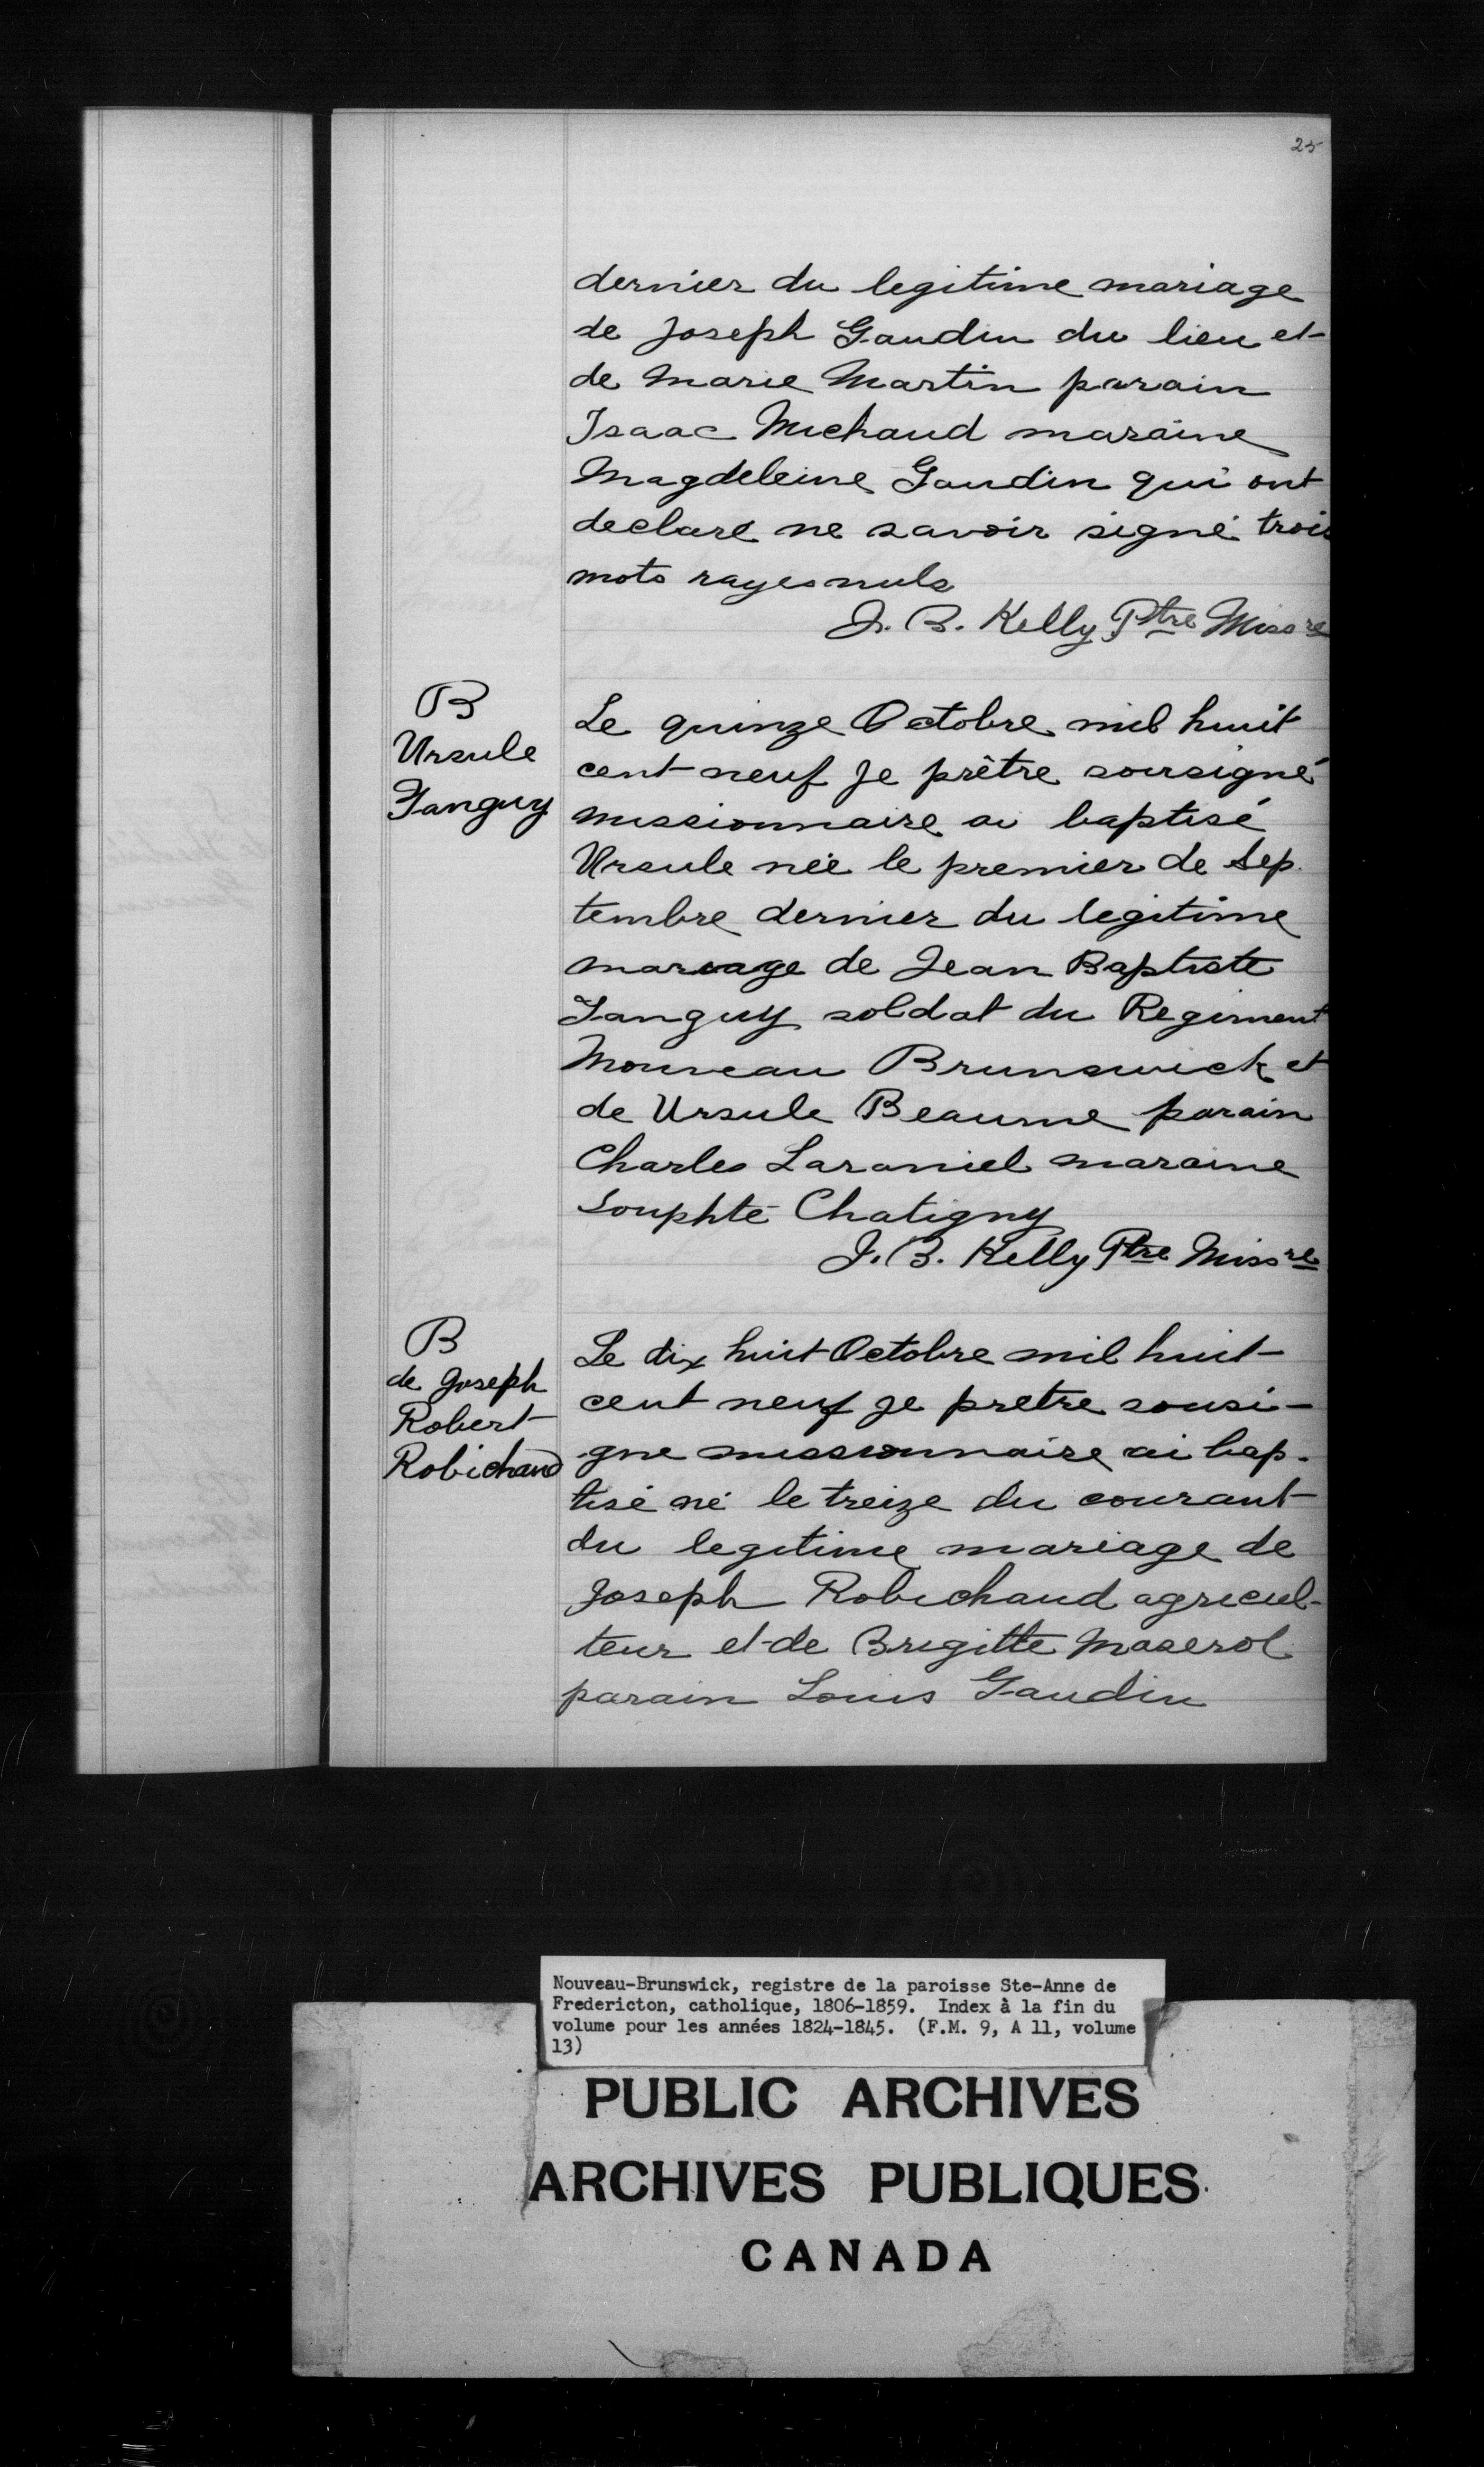 25
dernier du legitime mariage
de Joseph Gaudin du lieu et
de Marie Martin parain
Isaac Michaud maraine
Magdeleine Gaudin qui ont
declaré ne savoir signé trois
mots rayes nuls
J. B. Kelly Ptre Missre
B
Ursule
Tanguy
Le quinze Octobre mil huit
cent neuf Je prêtre soussigné
missionnaire ai baptisé
Ursule née le premier de Sep
tembre dernier du legitime
mariage de Jean Baptiste
Tanguy soldat du Regiment
Nouveau Brunswick et
de Ursule Beaume parain
Charles Laramiel maraine
Chatigny
J. B. Kelly Ptre Missre
B
de Joseph
Robert
Robichaud
Le dix huit Octobre mil huit
cent neuf je pretre sousi-
gne missionnaire ai bap-
tisé né le treize du courant
du legitime mariage de
Joseph Robichaud agricul-
teur et de Brigitte Maserol
parain Louis Gaudin
Nouveau-Brunswick, registre de la paroisse Ste-Anne de
Fredericton, catholique, 1806-1859. Index à la fin du
volume pour les années 1824-1845. (F.M. 9, A 11, volume
13)
PUBLIC ARCHIVES
ARCHIVES PUBLIQUES
CANADA